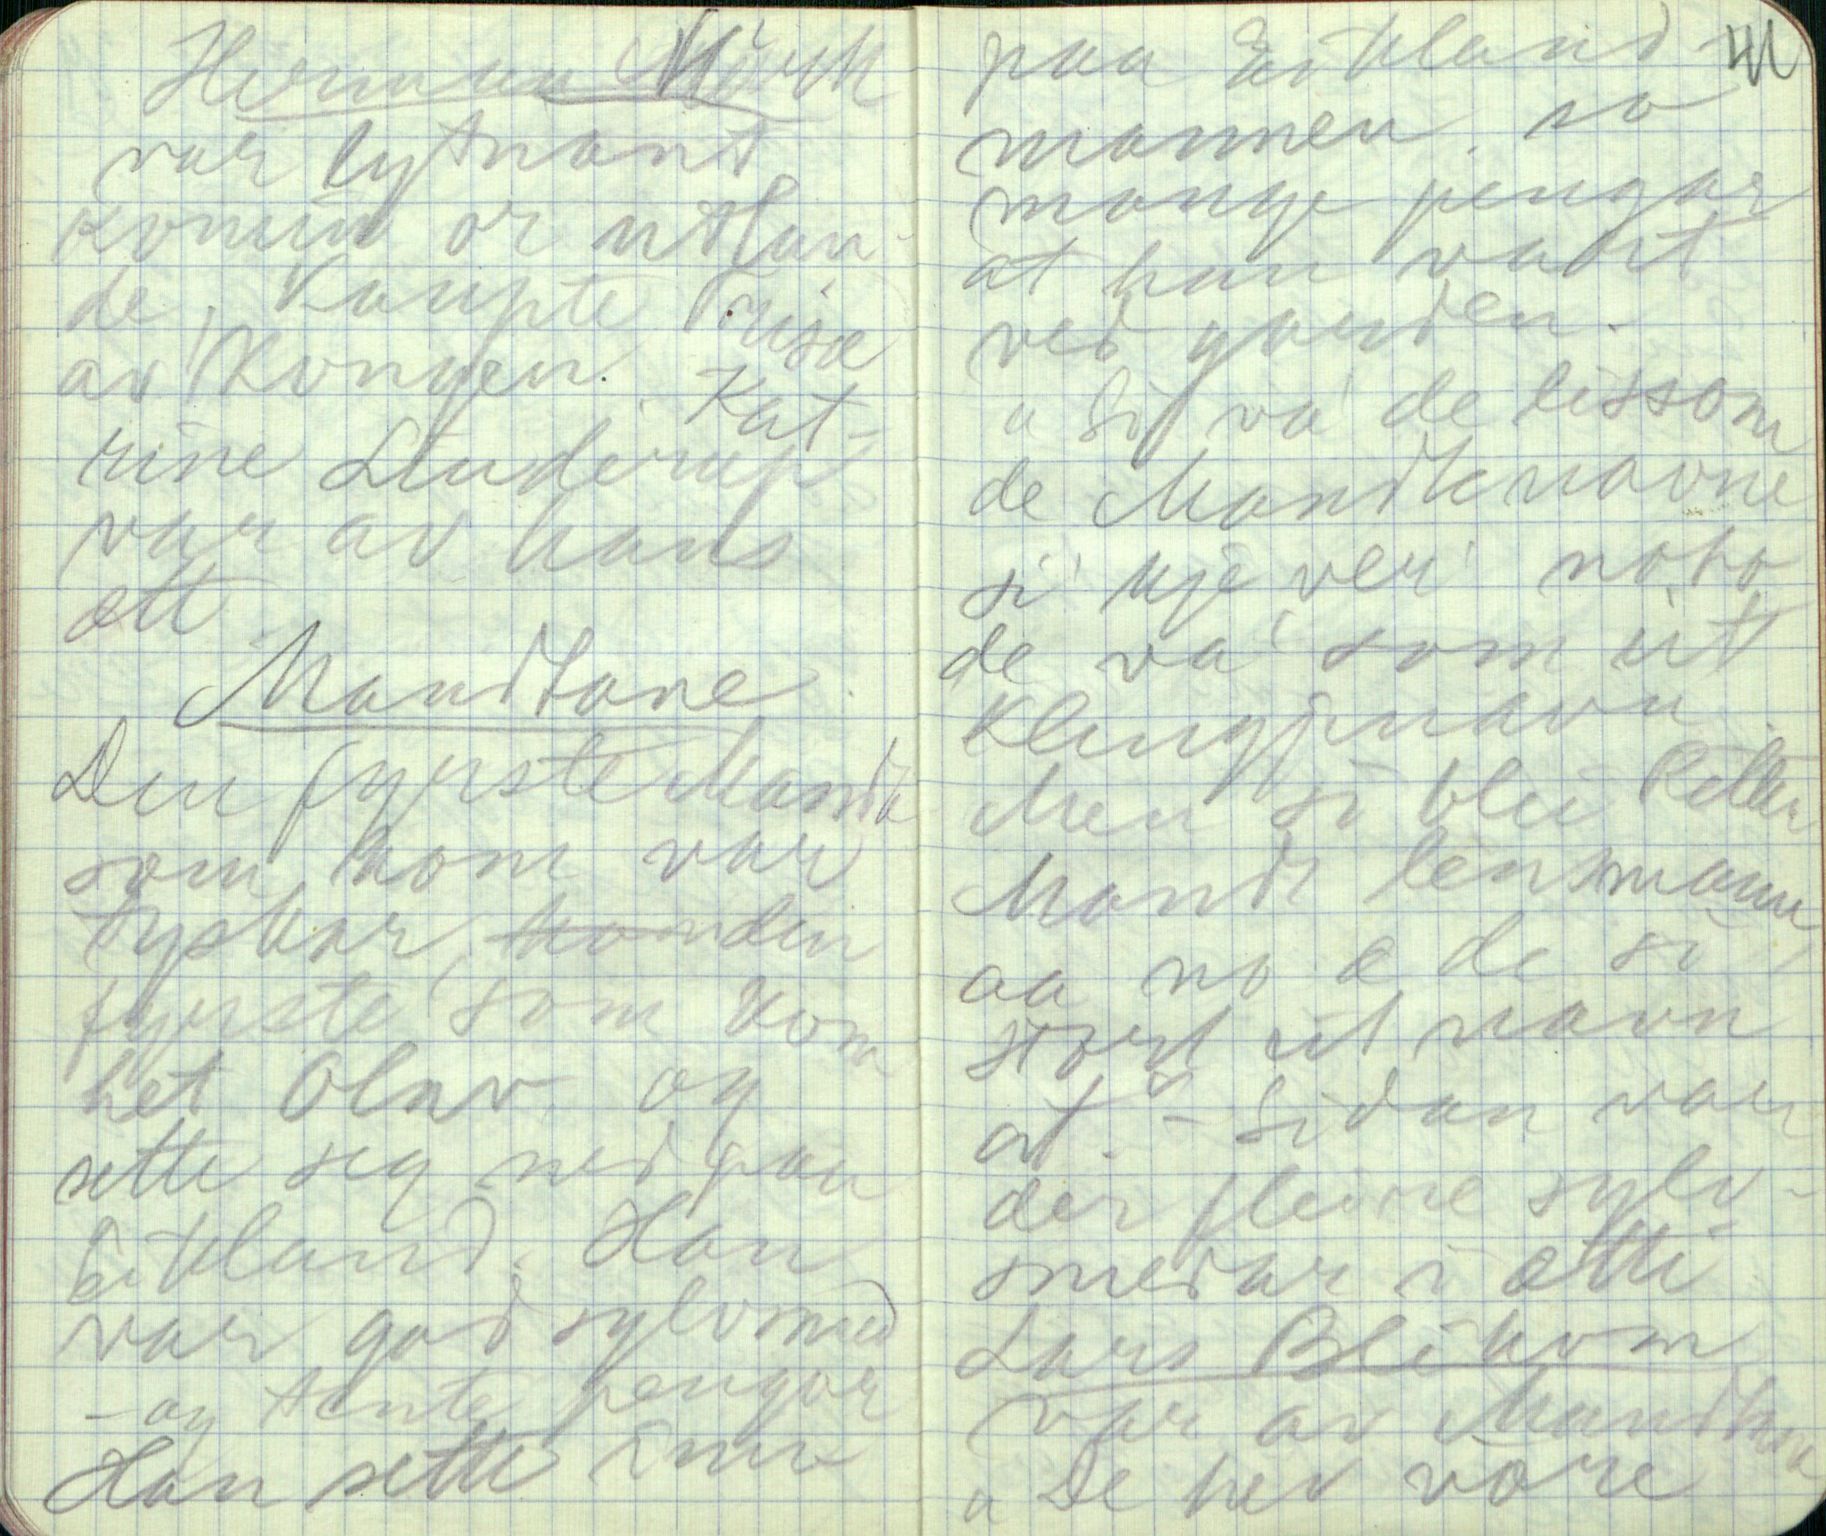 Herman Mörch
var lytnant
komin or utlan-
de. Kaupte Trisæ
av Kongen. Kat-
rine Linderup
var av hans
ætt
Mandtane
Den fyrste Mandt
som kom var
tyskar, kom den
fyrste som kom
het Olav og
sette seg ned paa
Eikland. Han
var god sylvsmed
- og tente pengar
Han sette inn
paa Eikland-
mannen, so
mange pengar
at han vart
ved garden.
a Si va' de lissom
de Mandtnavne
si' kje ver' noko
de va' som it
Klengjenavn.
Men si blei Petter
Mandt lensmann
aa no æ de so
stort it navn
at. - Sidan var
der fleire sylv-
smedar i ætti
Lars Blikom
var av Mandtane
a De hev vore
41